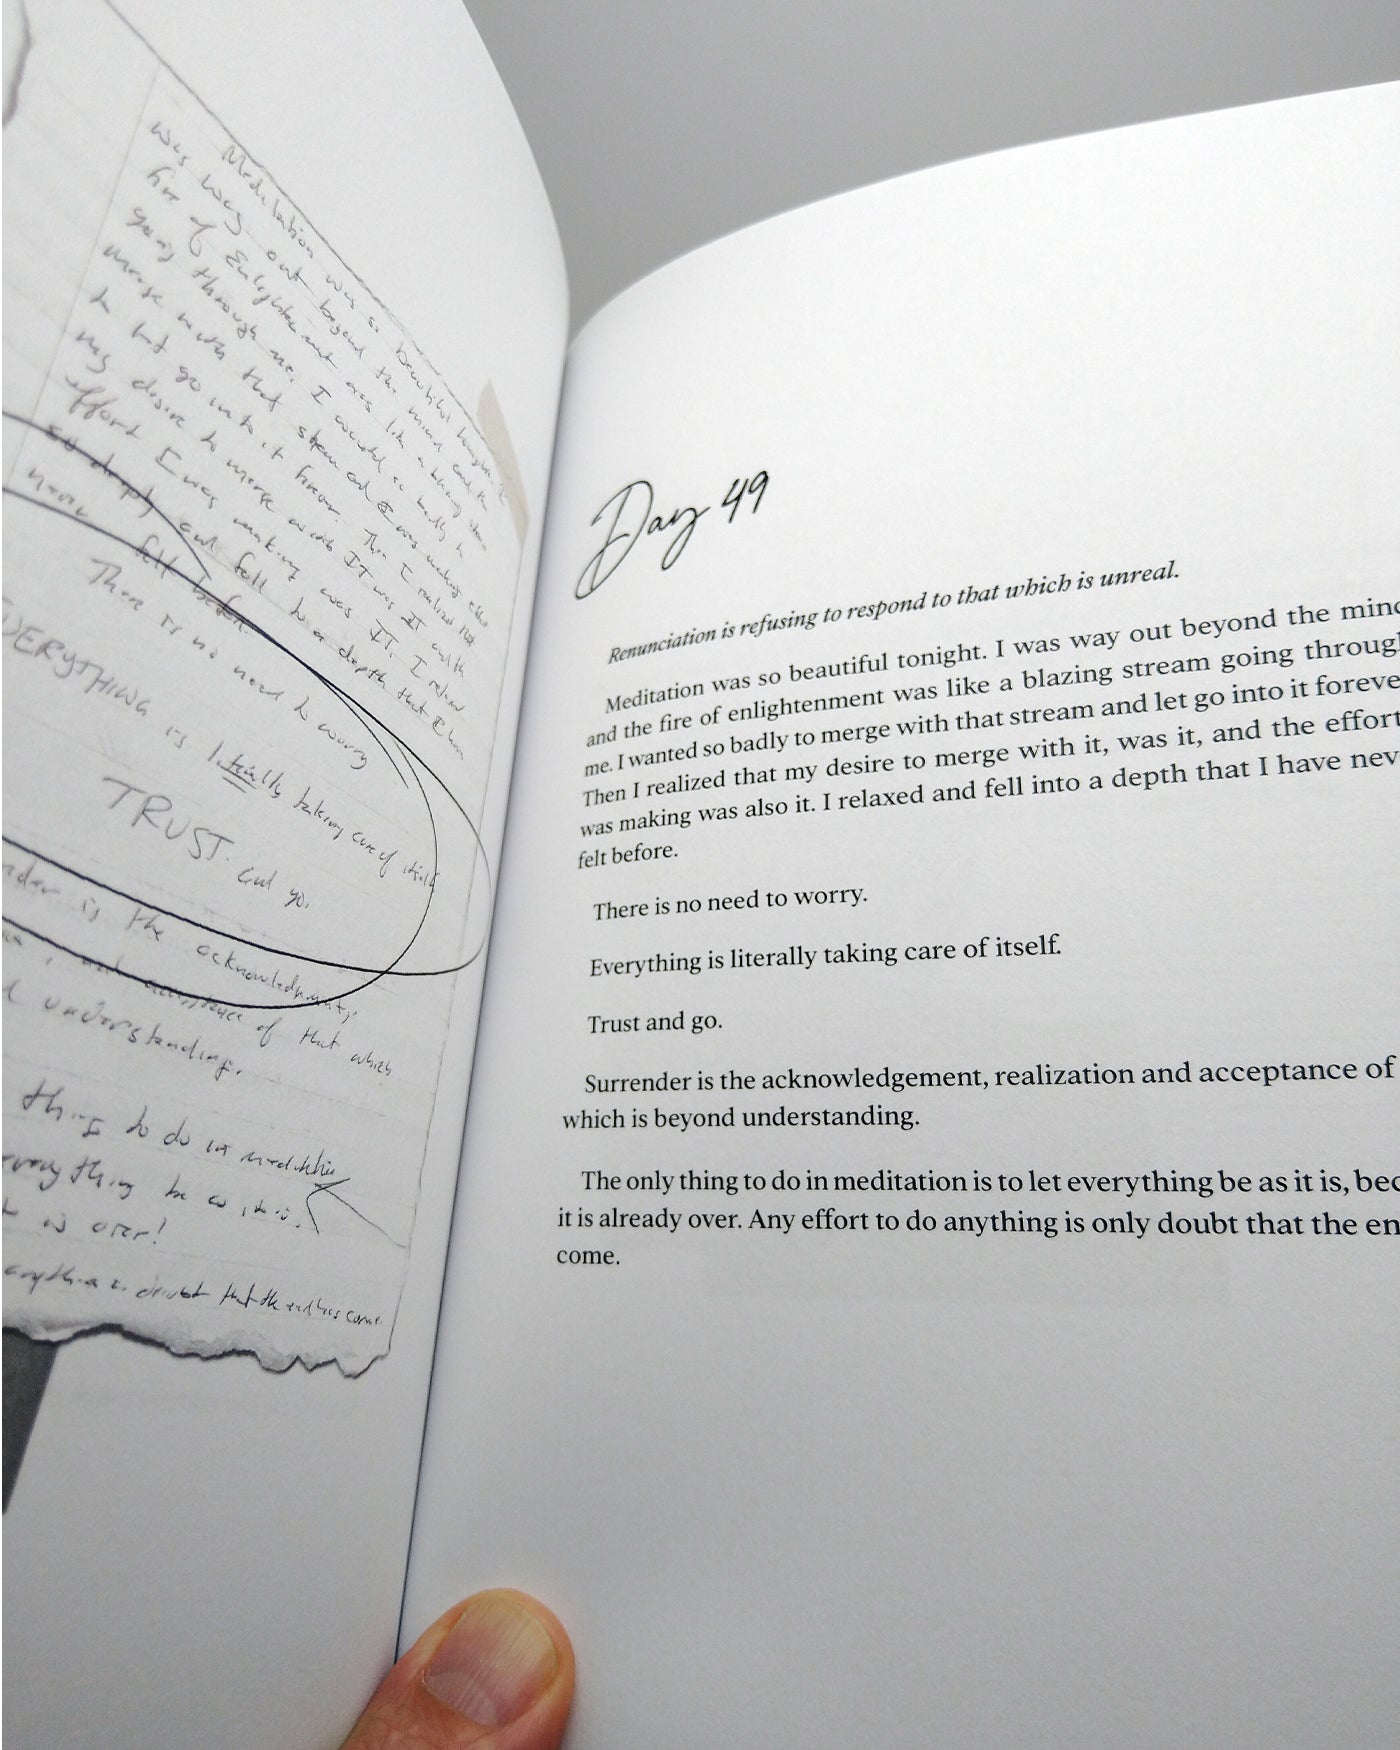 Meditation was so beautiful tonight. I
was way out beyond the mind and the
fire of Enlightenment was like a blazing stream
going through me. I wanted so badly to
merge with that stream and
to let go into it forever. Then I realized that
my desire to merge with IT was IT and the
effort I was making was IT. I relaxed
so deeply and fell to a depth that I have
never felt before.
There is no need to worry
EVERYTHING is literally taking care of itself
TRUST and go.
is the acknowledgment,
acceptance of that which
understanding.
thing to do in meditation
everything be as it is.
is over!
anything is doubt that the end has come
Day 49
Renunciation is refusing to respond to that which is unreal.
Meditation was so beautiful tonight. I was way out beyond the mind
and the fire of enlightenment was like a blazing stream going through
me. I wanted so badly to merge with that stream and let go into it foreve
Then I realized that my desire to merge with it, was it, and the effort
was making was also it. I relaxed and fell into a depth that I have nev
felt before.
There is no need to worry.
Everything is literally taking care of itself.
Trust and go.
Surrender is the acknowledgement, realization and acceptance of
which is beyond understanding.
The only thing to do in meditation is to let everything be as it is, bec
it is already over. Any effort to do anything is only doubt that the en
come.